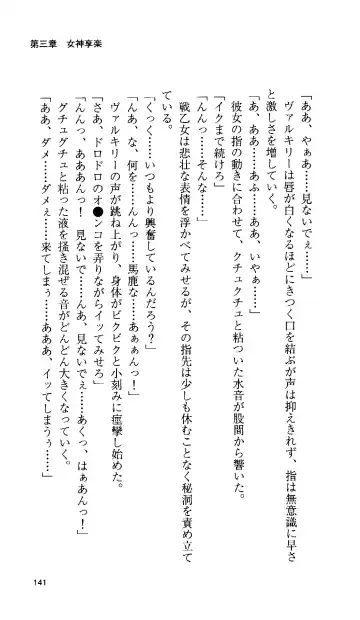 第三章　女神享楽
「ああ、やぁあ……見ないでぇ……」
ヴァルキリーは唇が白くなるほどにきつく口を結ぶが声は抑えきれず、指は無意識に早さ
と激しさを増していく。
「あ、ああ……あふ……ああ、いやぁ……」
彼女の指の動きに合わせて、クチュクチュと粘ついた水音が股間から響いた。
「イクまで続けろ」
「んんっ……そんな……」
戦乙女は悲壮な表情を浮かべてみせるが、その指先は少しも休むことなく秘洞を責め立て
ている。
「くっく……いつもより興奮しているんだろう？」
「んあ、な、何を……んんっ……馬鹿な……あぁぁんっ！」
ヴァルキリーの声が跳ね上がり、身体がビクビクと小刻みに痙攣し始めた。
「さあ、ドロドロのオ●ンコを弄りながらイッてみせろ」
「んんっ、あああんっ！　見ないで……んんっ……あくっ、はぁあんっ！」
グチュグチュと粘った液を掻き混ぜる音がどんどん大きくなっていく。
「ああ、ダメ……ダメぇ……来てしまぅ……あああ、イッてしまうぅ……」
141